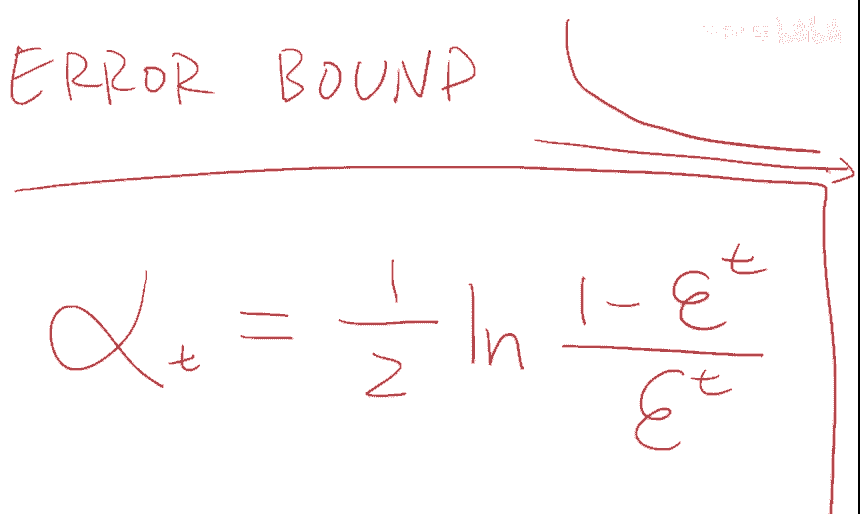 ERROR BOUND
α_t = 1/2 ln (1 - ε^t)/(ε^t)